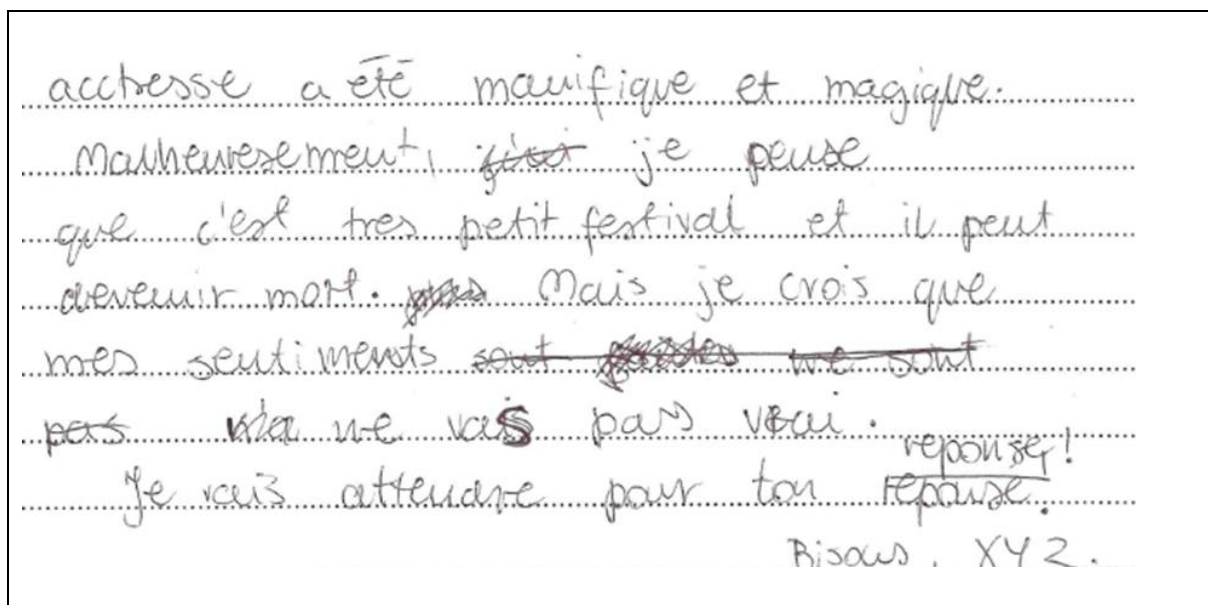 acctresse a été manifique et magique.
Malheuresement, je pense
que c'est tres petit festival et il peut
devenir mort. Mais je crois que
mes sentiments sont ne sont
pas ne vais pas vrai.
reponse!
Je vais attendre pour ton reponse.
Bisous, XYZ.